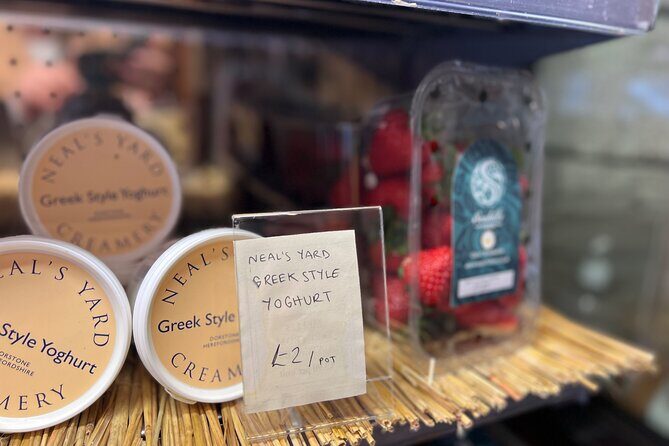 NEAL'S YARD
Greek Style Yoghurt
CREAMERY
NEAL'S YARD
Style Yoghurt
DORSTONE
MERY
NEAL'S
Greek Style
DORSTONE
HEREFORDSHIRE
CREAM
NEAL'S YARD
GREEK STYLE
YOGHURT
£2/POT